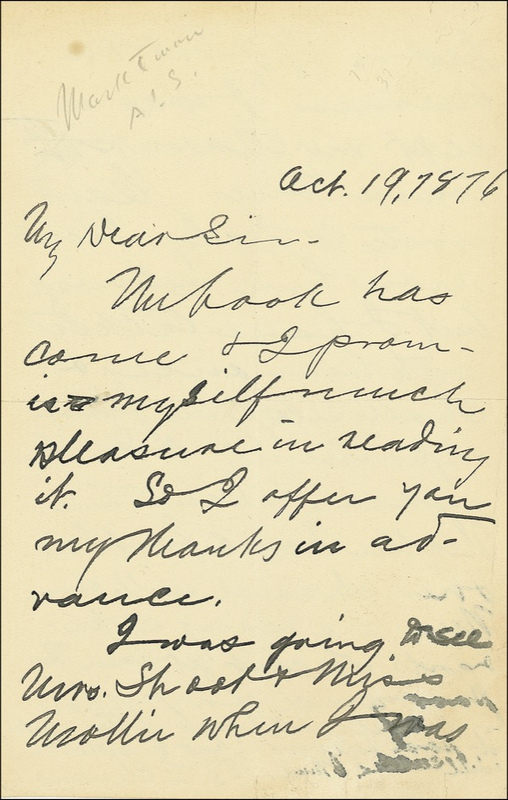 Mark Twain
A.L.S.
Oct. 19, 1876
My Dear Sir—
The book has
come & I prom-
ise myself much
pleasure in reading
it. So I offer you
my thanks in ad-
vance.
I was going to see
Mrs. Shoot & Miss
Mollie when I was